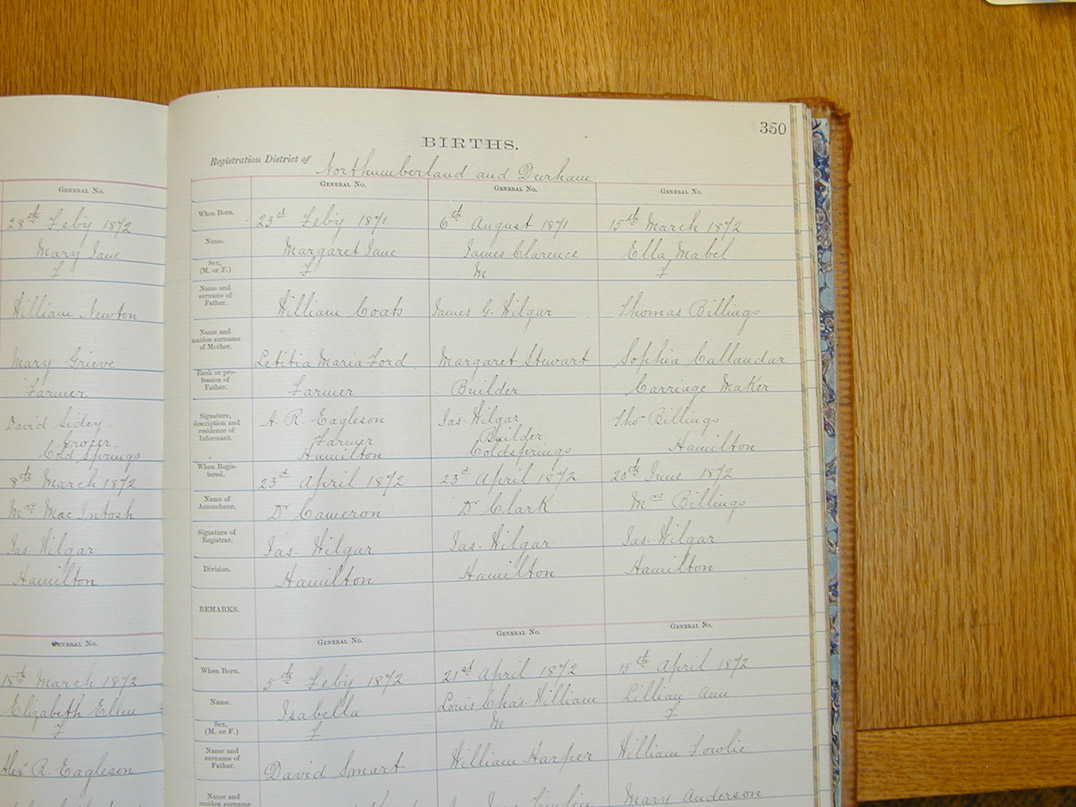 GENERAL NO.
28th Feby 1872
Mary Jane
F
William Newton
Mary Grieve
Farmer
David Sidey
Grocer
Cold Springs
8th March 1872
Mrs MacIntosh
Jas. Hilgar
Hamilton
GENERAL NO.
18th March 1872
Elizabeth Ellen
F
R. Eagleson
350
BIRTHS.
Registration District of Northumberland and Durham
GENERAL NO. GENERAL NO. GENERAL NO.
When Born. 23rd Feby 1871 6th August 1871 15th March 1872
Name. Margaret Jane James Clarence Ella Mabel
Sex, (M. or F.) F M F
Name and surname of Father. William Coats James G. Hilgar Thomas Billings
Name and maiden surname of Mother. Letitia Maria Ford Margaret Stewart Sophia Callandar
Rank or profession of Father. Farmer Builder Carriage Maker
Signature, description and residence of Informant. A. R. Eagleson Jas. Hilgar Thos Billings
Farmer Builder
Hamilton Coldsprings Hamilton
When Registered. 23rd April 1872 23rd April 1872 20th June 1872
Name of Accoucheur. Dr Cameron Dr Clark Mrs Billings
Signature of Registrar. Jas. Hilgar Jas. Hilgar Jas. Hilgar
Division. Hamilton Hamilton Hamilton
REMARKS.
GENERAL NO. GENERAL NO. GENERAL NO.
When Born. 5th Feby 1872 21st April 1872 15th April 1872
Name. Isabella Louis Chas. William Lillian Ann
Sex, (M. or F.) F M F
Name and surname of Father. David Smart William Harper William Fowlie
Name and maiden surname Mary Anderson